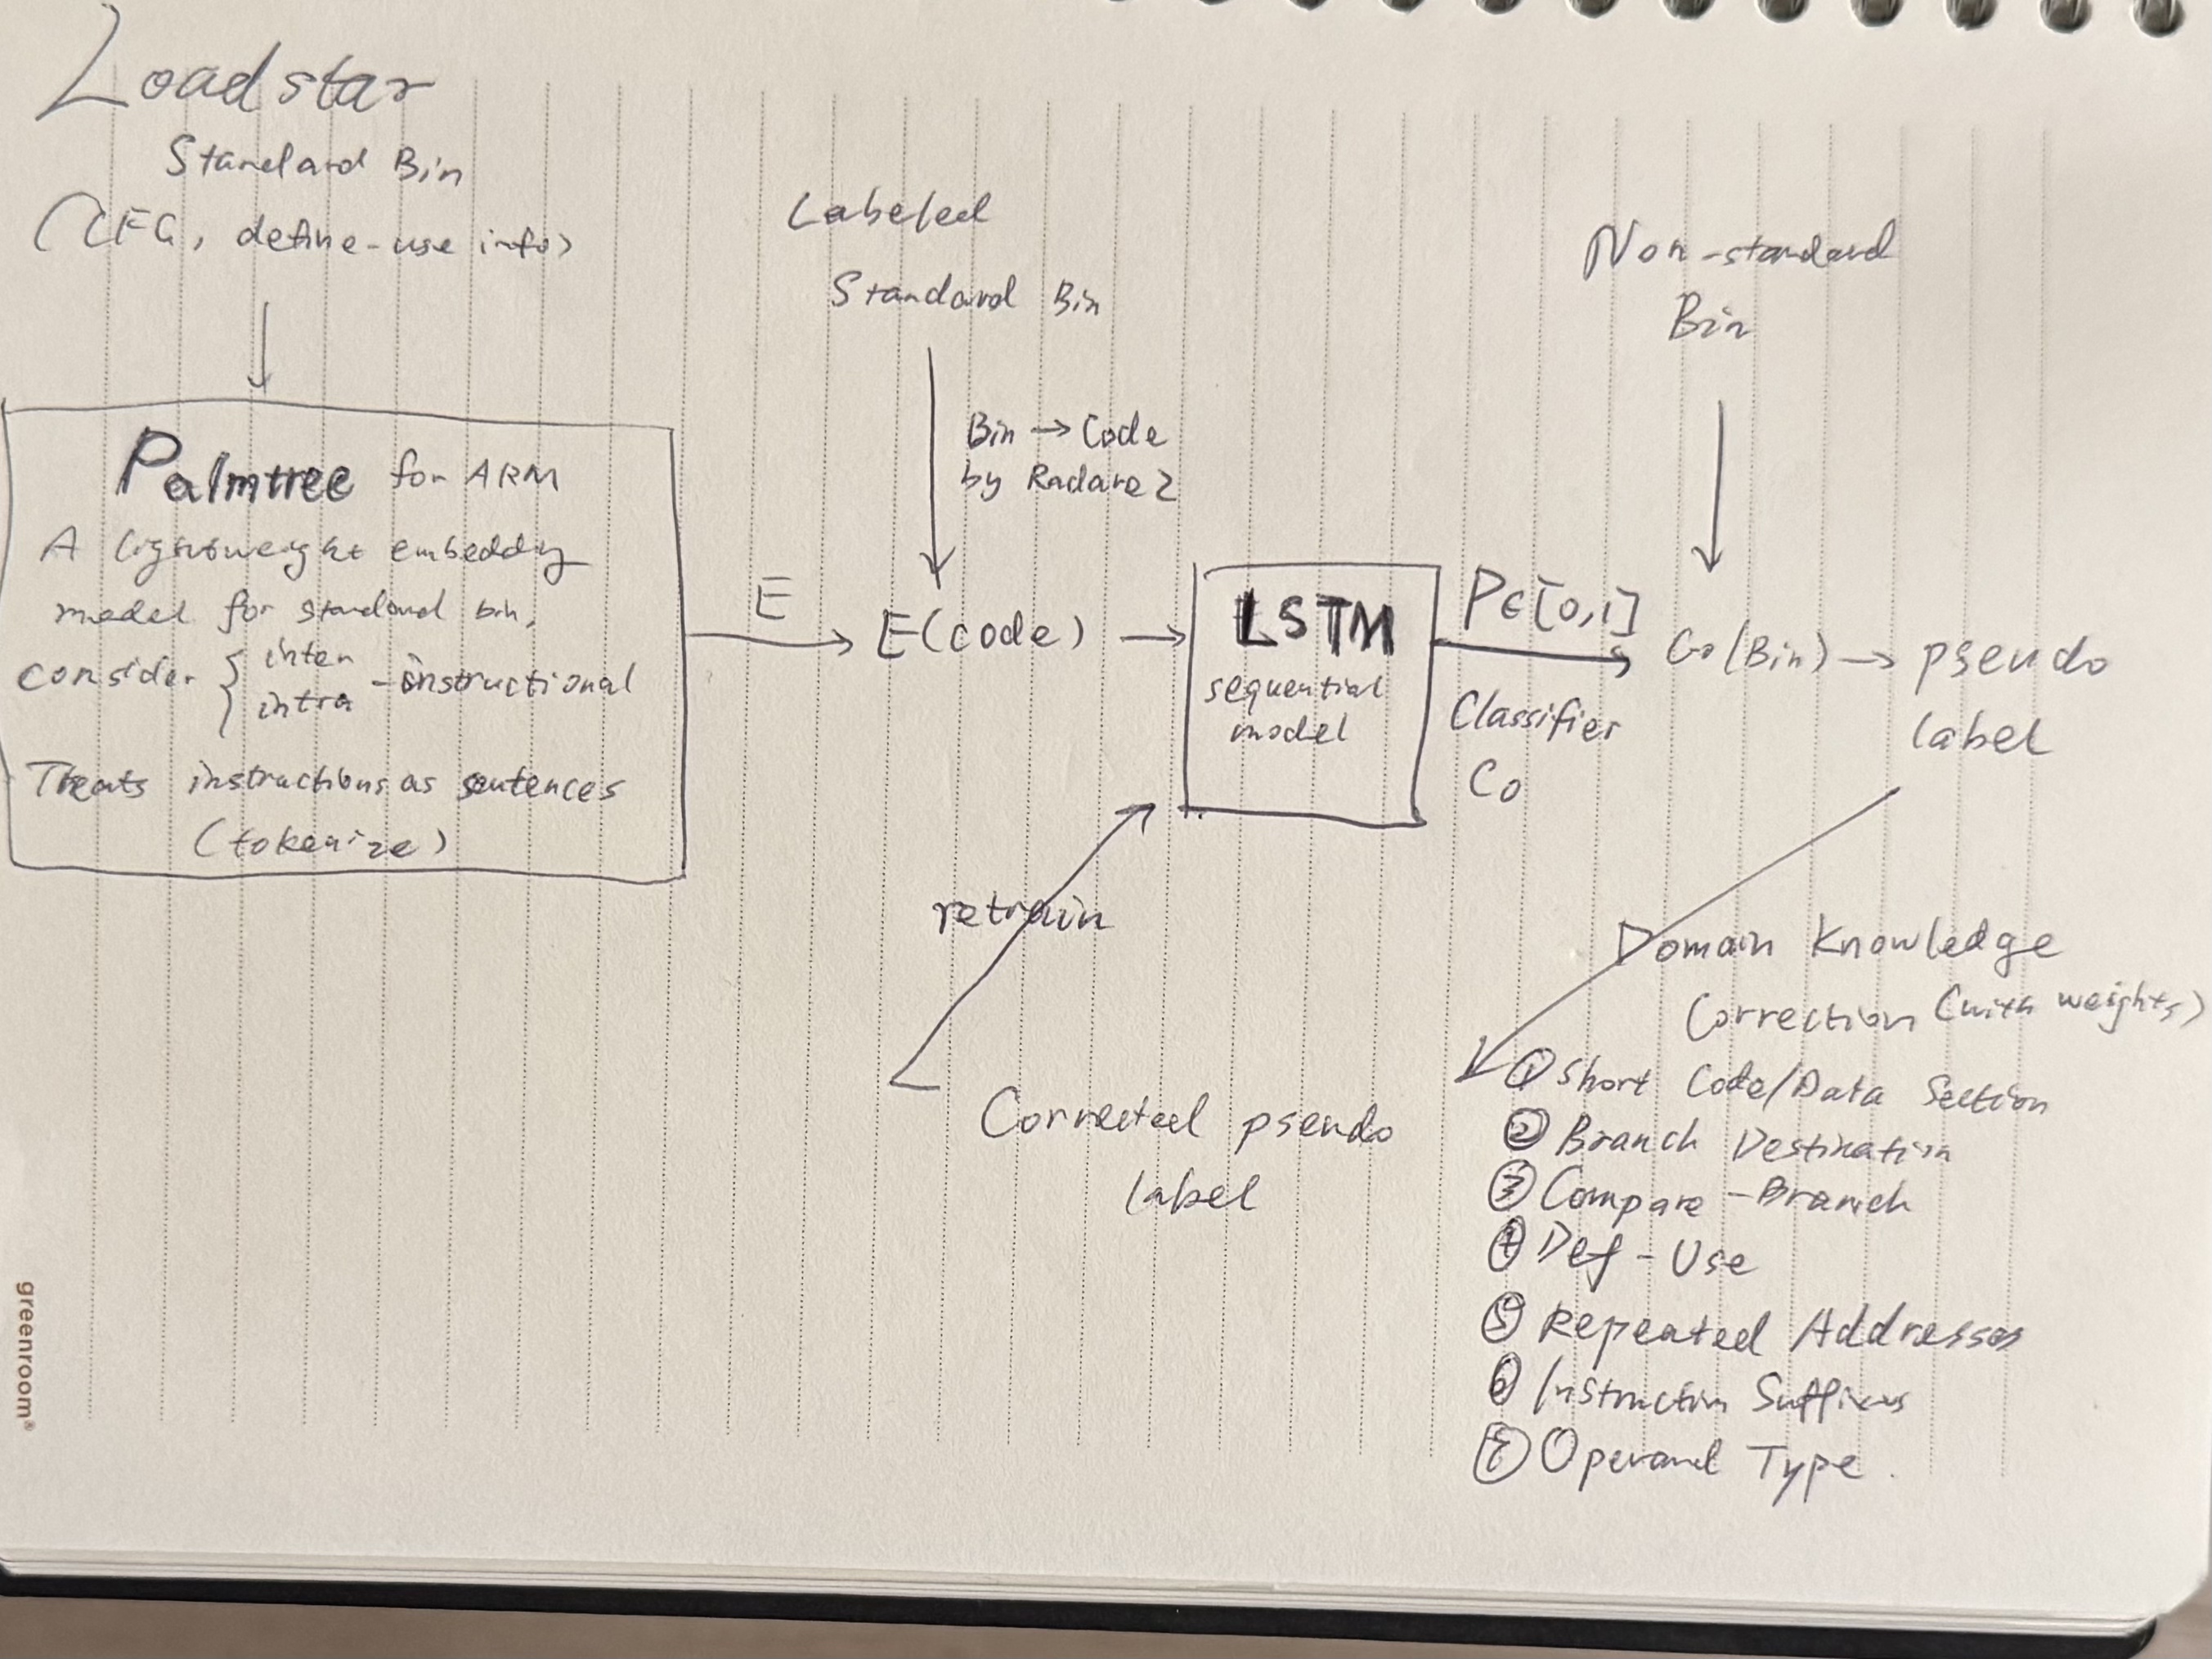 Loadstar
Standard Bin
(CFG, define-use info)
Palmtree for ARM
A lightweight embedding
model for standard bin,
consider { inter
intra -instructional
Treats instructions as sentences
(tokenize)
E
Labeled
Standard Bin
Bin → Code
by Radare 2
E(code)
LSTM
sequential
model
P∈[0,1]
Classifier
C0
Non-standard
Bin
C0(Bin) → pseudo
label
Domain Knowledge
Correction (with weights)
① Short Code/Data Section
② Branch Destination
③ Compare-Branch
④ Def-Use
⑤ Repeated Addresses
⑥ Instruction Suffixes
⑦ Operand Type.
Corrected pseudo
label
retrain
greenroom®